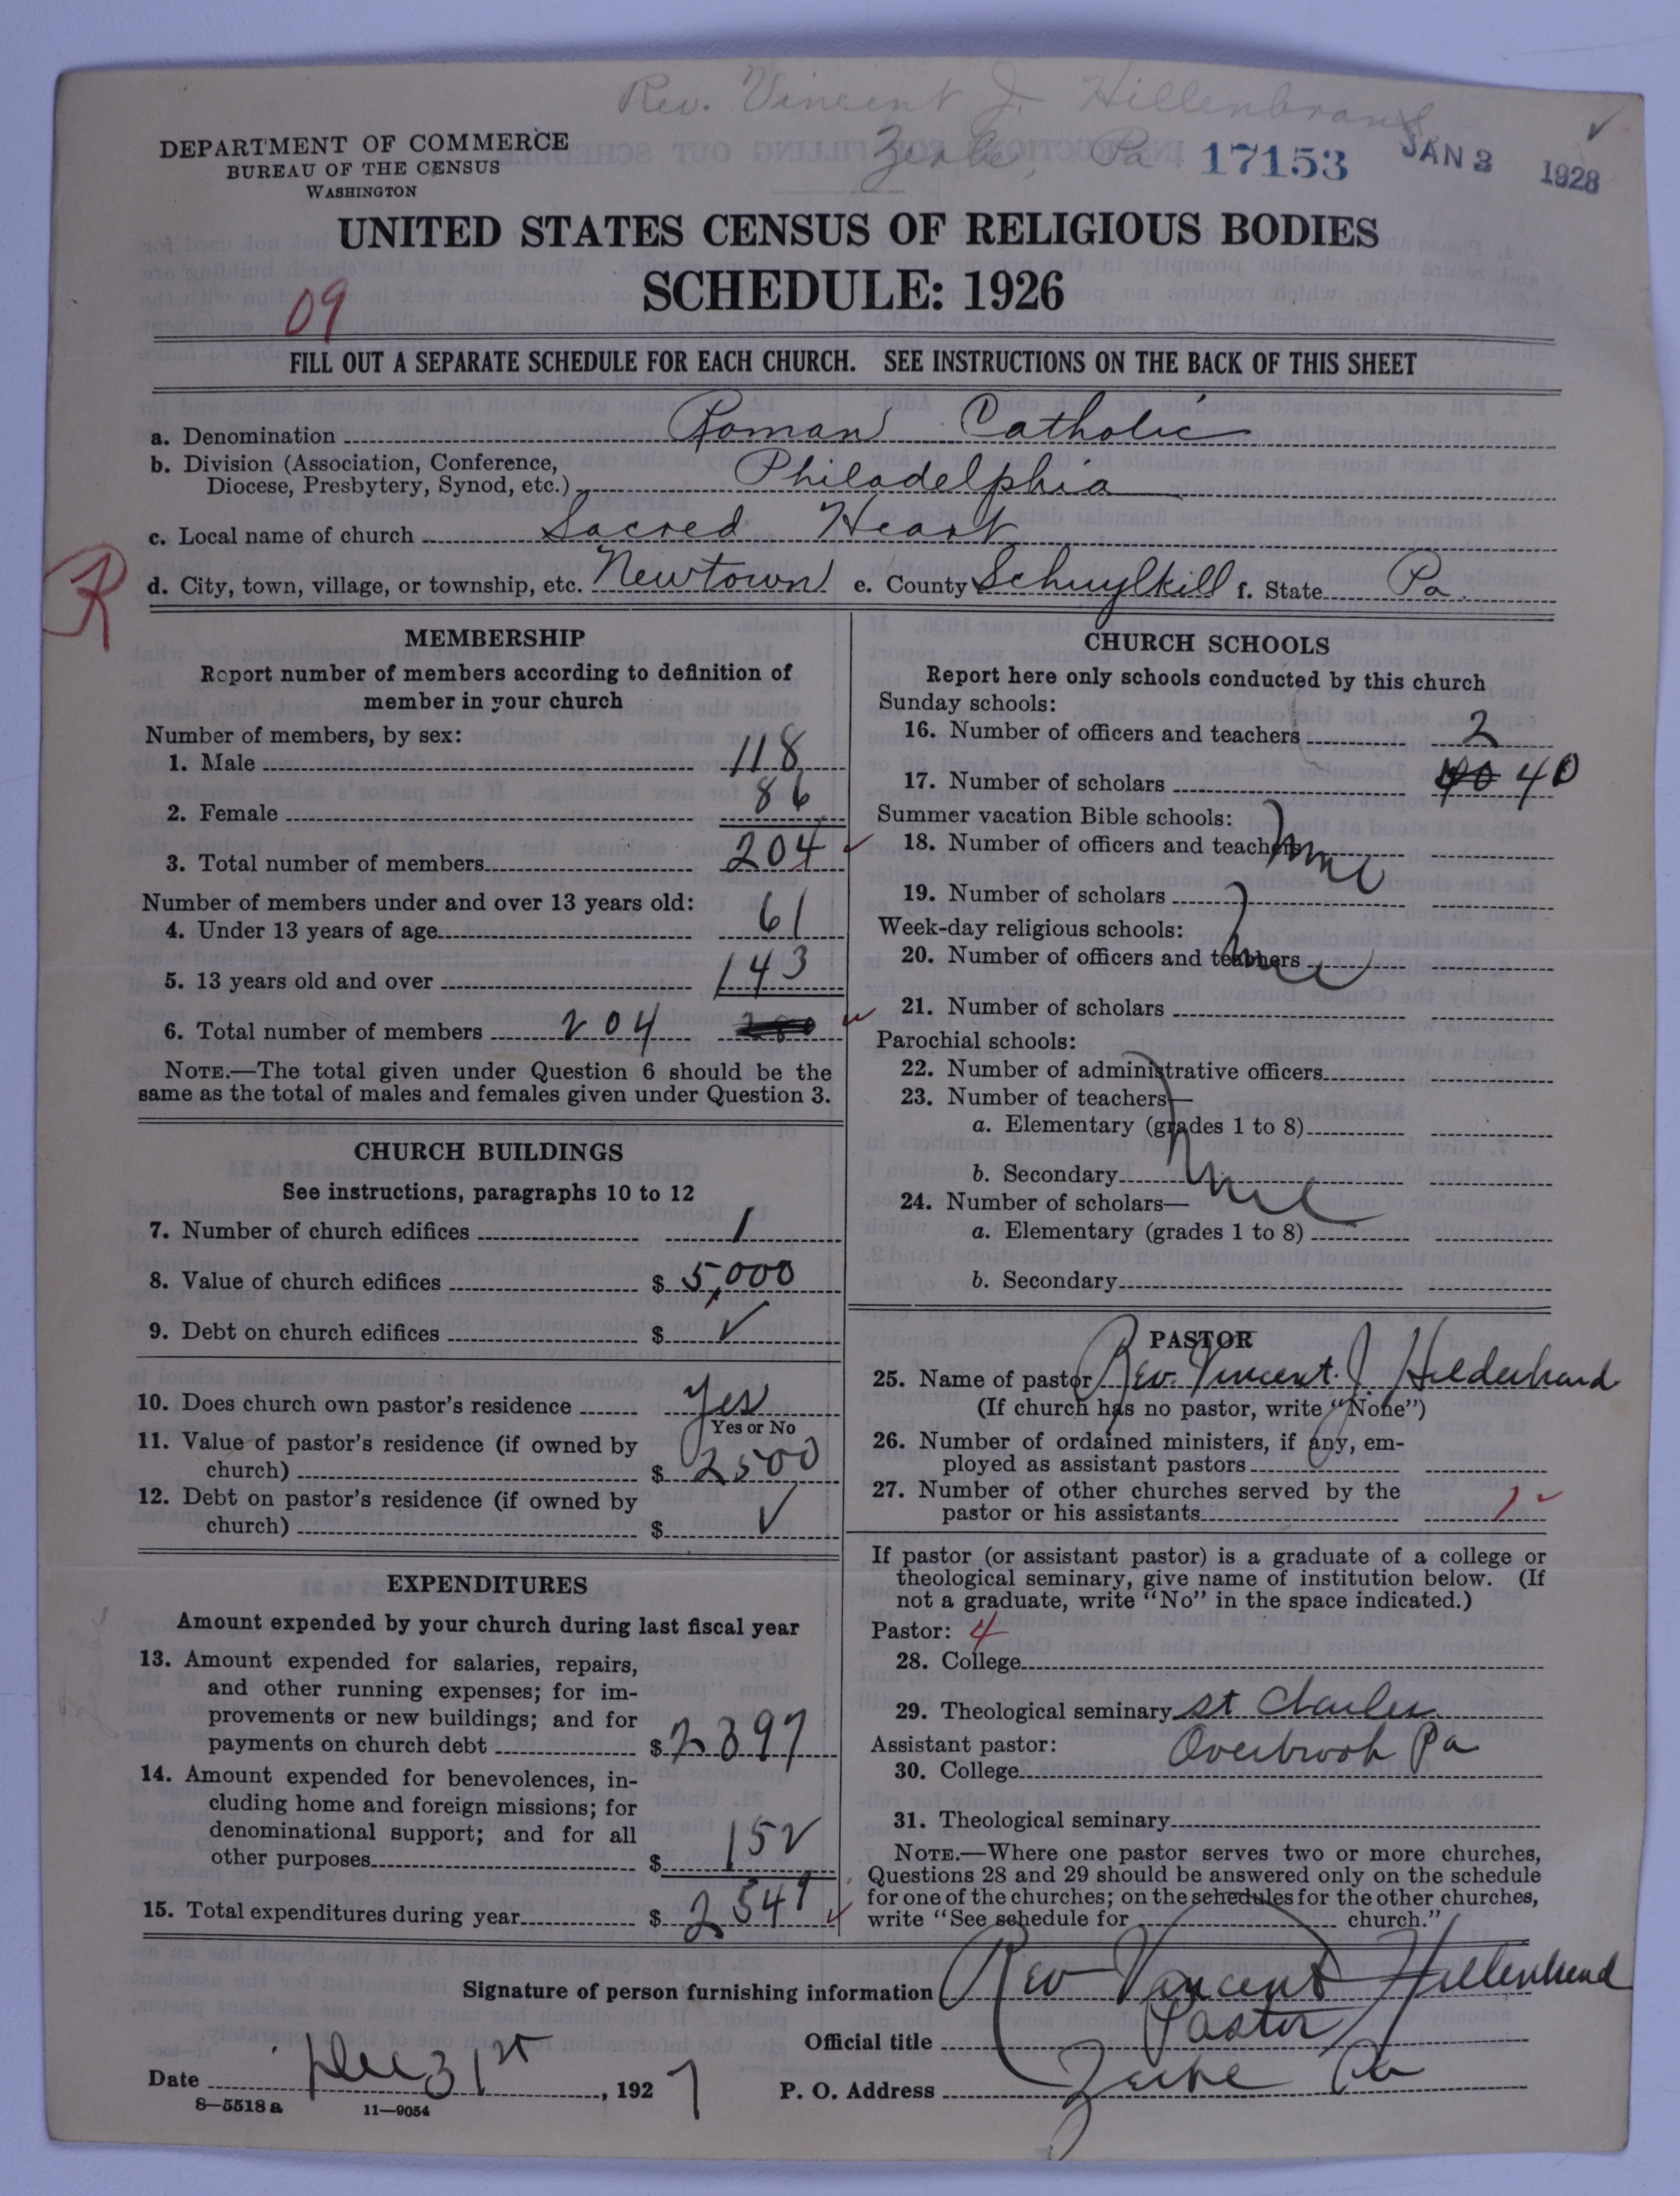 Rev. Vincent J. Hillenbrand
Zerbe, Pa 17153 JAN 3 1928
DEPARTMENT OF COMMERCE
BUREAU OF THE CENSUS
WASHINGTON
UNITED STATES CENSUS OF RELIGIOUS BODIES
SCHEDULE: 1926
09
FILL OUT A SEPARATE SCHEDULE FOR EACH CHURCH. SEE INSTRUCTIONS ON THE BACK OF THIS SHEET
a. Denomination Roman Catholic
b. Division (Association, Conference,
Diocese, Presbytery, Synod, etc.) Philadelphia
c. Local name of church Sacred Heart
R
d. City, town, village, or township, etc. Newtown e. County Schuylkill f. State Pa.
MEMBERSHIP
Report number of members according to definition of
member in your church
Number of members, by sex:
1. Male 118
2. Female 86
3. Total number of members 204
Number of members under and over 13 years old:
4. Under 13 years of age 61
5. 13 years old and over 143
6. Total number of members 204
NOTE.—The total given under Question 6 should be the
same as the total of males and females given under Question 3.
CHURCH BUILDINGS
See instructions, paragraphs 10 to 12
7. Number of church edifices 1
8. Value of church edifices $ 5,000
9. Debt on church edifices $ ✓
10. Does church own pastor's residence Yes
Yes or No
11. Value of pastor's residence (if owned by
church) $ 2500
12. Debt on pastor's residence (if owned by
church) $ ✓
EXPENDITURES
Amount expended by your church during last fiscal year
13. Amount expended for salaries, repairs,
and other running expenses; for im-
provements or new buildings; and for
payments on church debt $ 2397
14. Amount expended for benevolences, in-
cluding home and foreign missions; for
denominational support; and for all
other purposes $ 152
15. Total expenditures during year $ 2549
CHURCH SCHOOLS
Report here only schools conducted by this church
Sunday schools:
16. Number of officers and teachers 2
17. Number of scholars 40
Summer vacation Bible schools:
18. Number of officers and teachers none
19. Number of scholars
Week-day religious schools:
20. Number of officers and teachers none
21. Number of scholars
Parochial schools:
22. Number of administrative officers
23. Number of teachers—
a. Elementary (grades 1 to 8)
b. Secondary none
24. Number of scholars—
a. Elementary (grades 1 to 8)
b. Secondary
PASTOR
25. Name of pastor Rev. Vincent. J. Hildenbrand
(If church has no pastor, write "None")
26. Number of ordained ministers, if any, em-
ployed as assistant pastors
27. Number of other churches served by the
pastor or his assistants 1
If pastor (or assistant pastor) is a graduate of a college or
theological seminary, give name of institution below. (If
not a graduate, write "No" in the space indicated.)
Pastor: 4
28. College
29. Theological seminary St Charles
Assistant pastor: Overbrook Pa
30. College
31. Theological seminary
NOTE.—Where one pastor serves two or more churches,
Questions 28 and 29 should be answered only on the schedule
for one of the churches; on the schedules for the other churches,
write "See schedule for church."
Signature of person furnishing information Rev Vincent Hillenbrand
Official title Pastor
Date Dec 31st, 1927 P. O. Address Zerbe Pa
8—5518a 11—9054